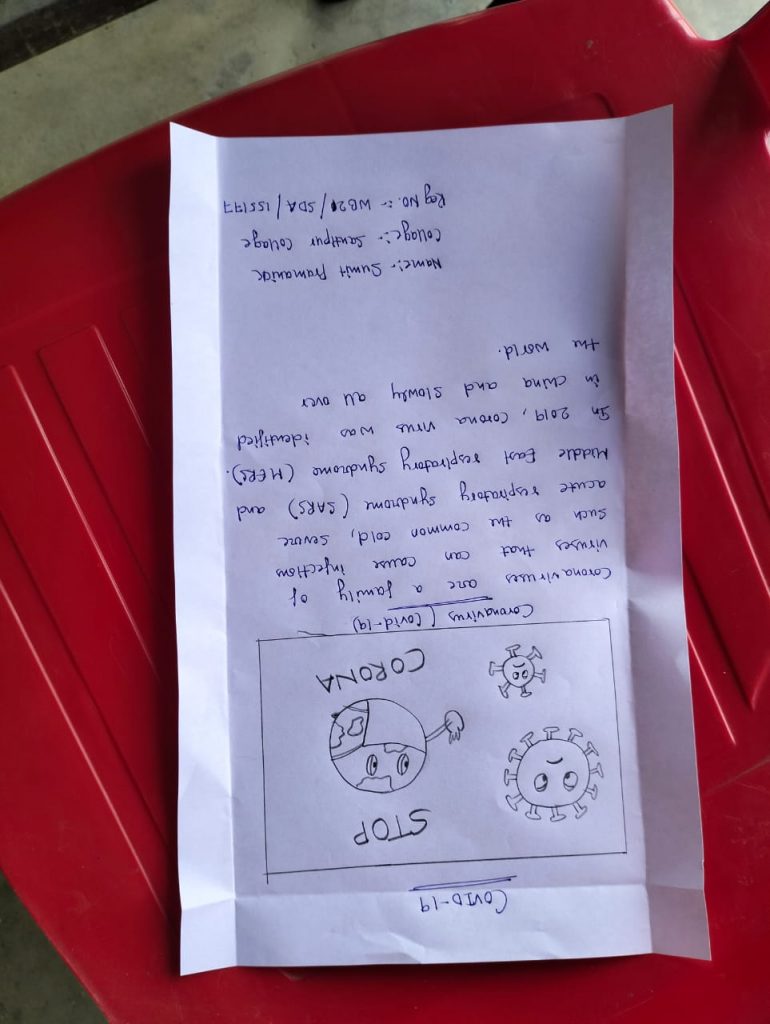 COVID-19
STOP
CORONA
Coronavirus (Covid-19)
Coronaviruses are a family of
viruses that can cause infections
such as the common cold, severe
acute respiratory syndrome (SARS) and
Middle East respiratory syndrome (MERS).
In 2019, corona virus was identified
in china and slowly all over
the world.
Name:- Sumit Pramanick
Collage:- Santipur Collage
Reg No.:- WB21/SDA/155177